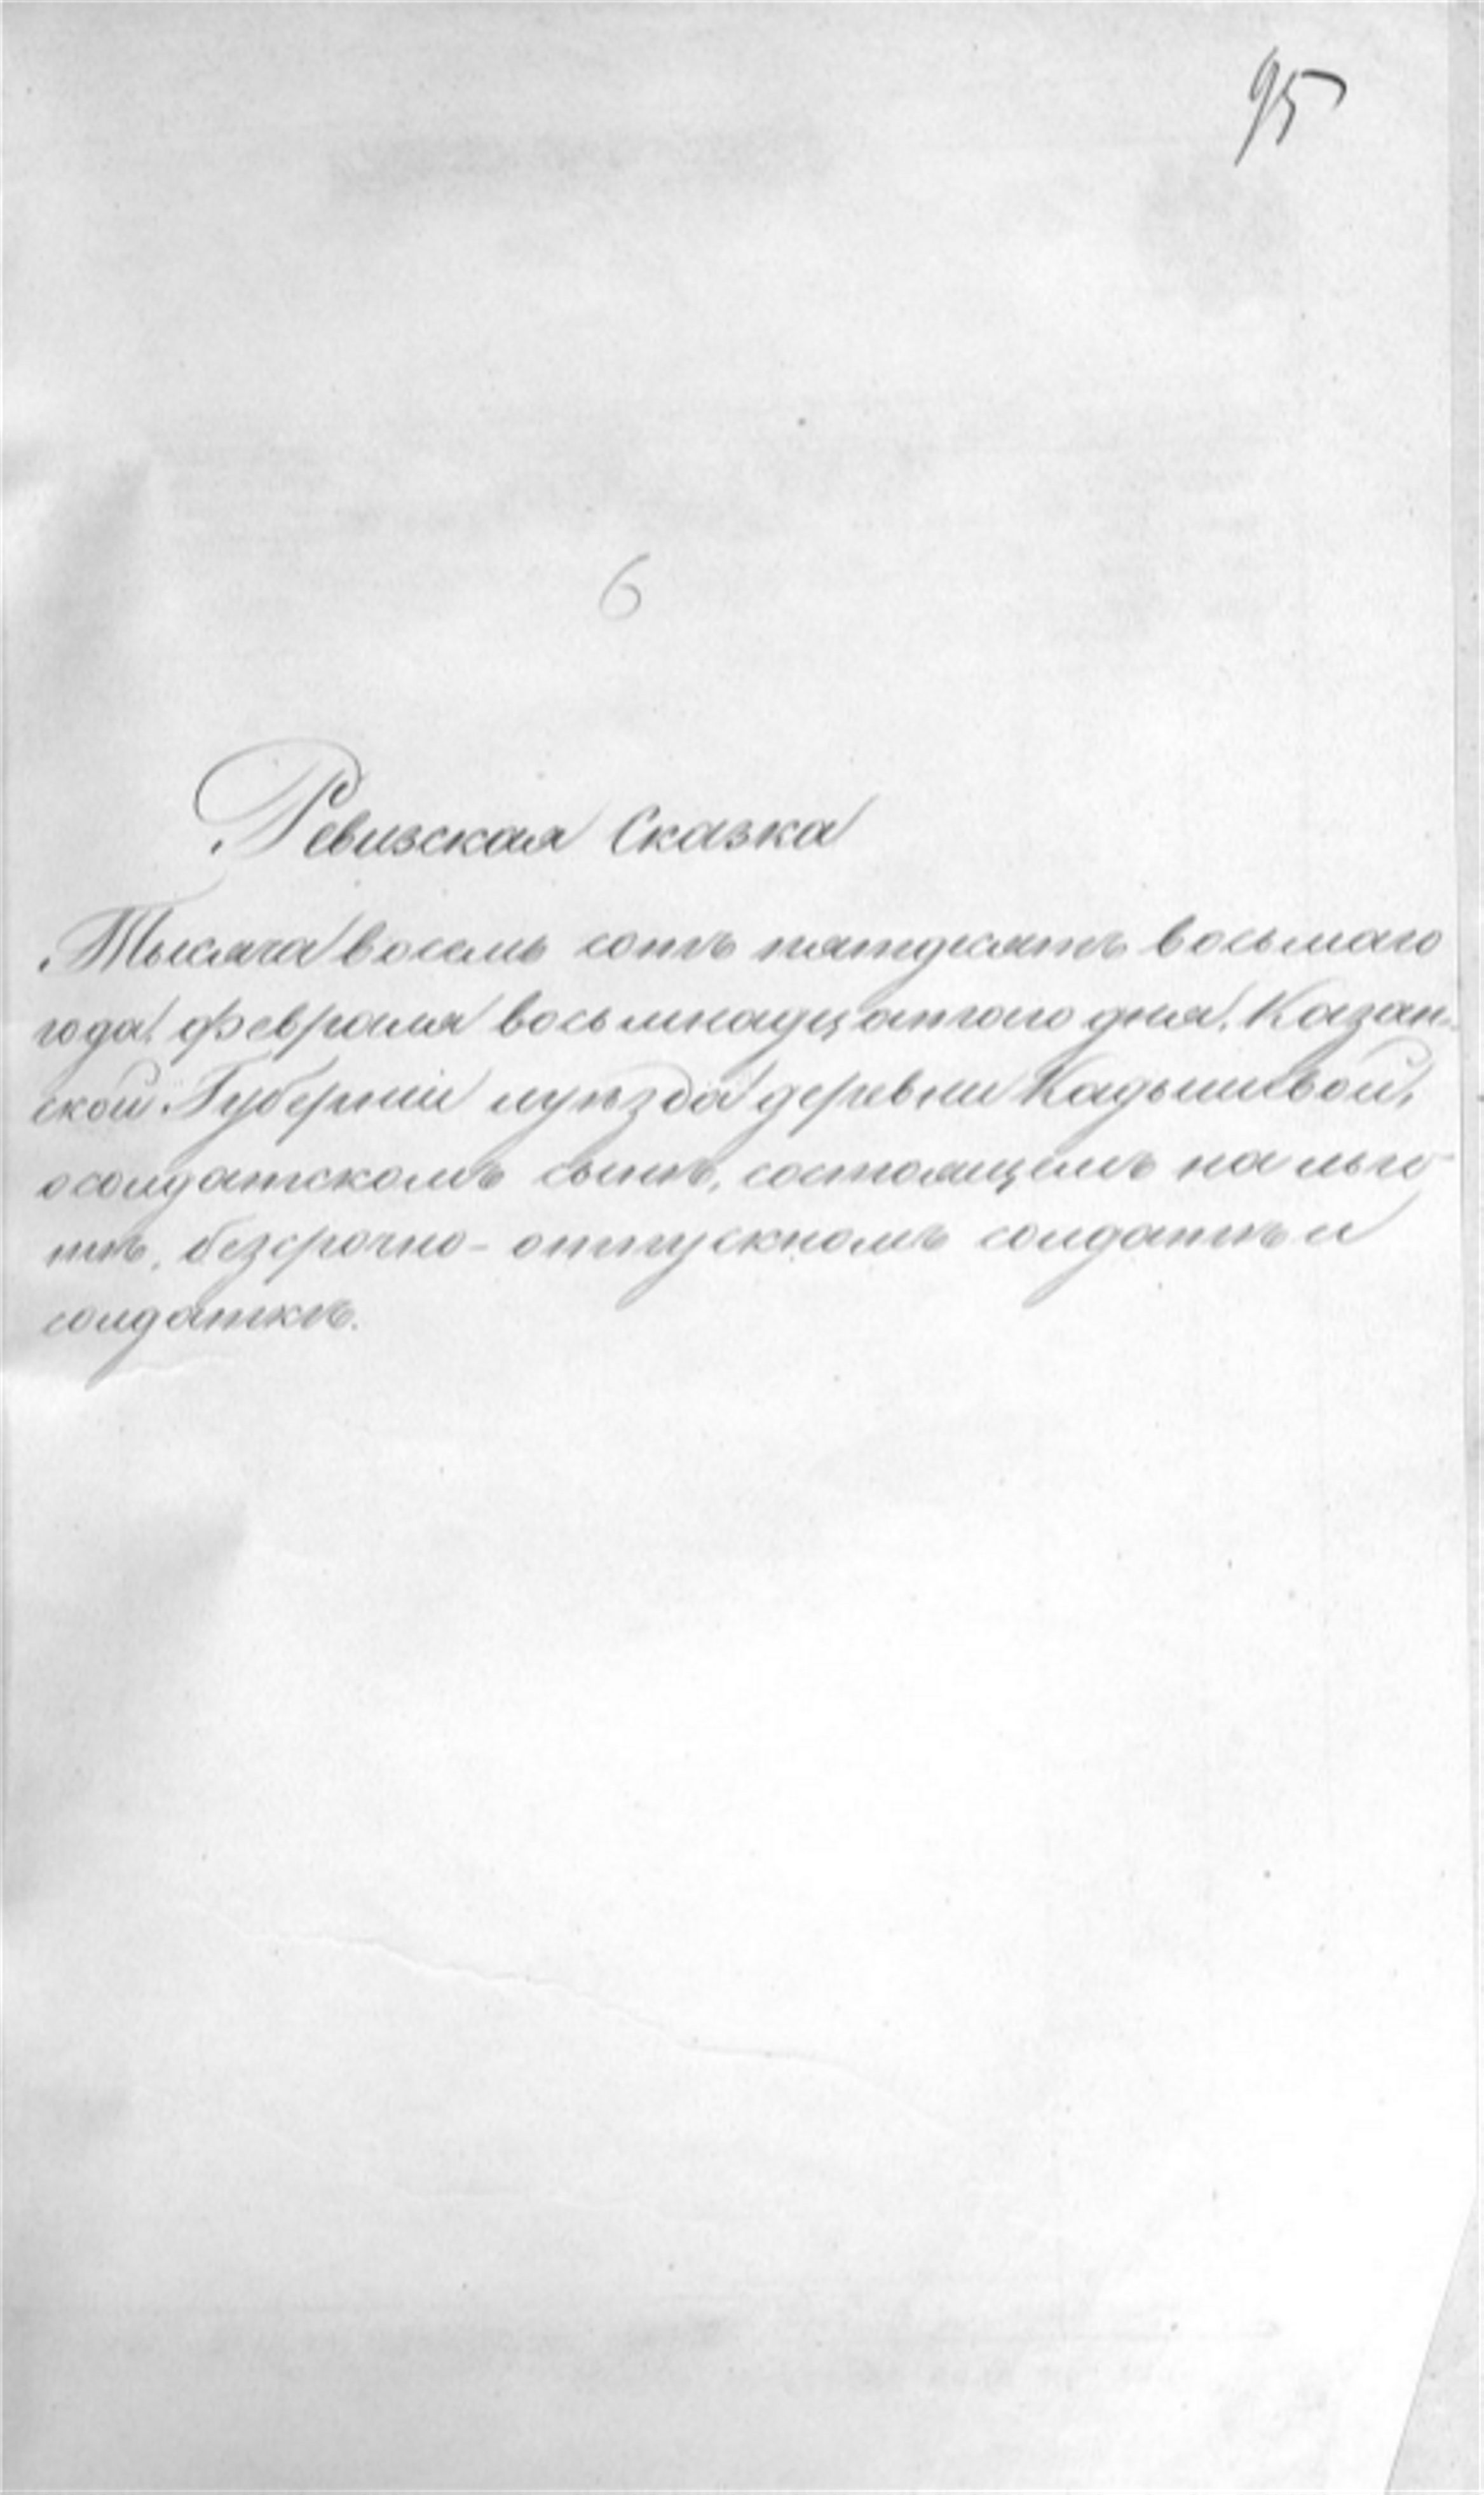 95
6
Ревизская Сказка
Тысяча восемь сотъ пятдесятъ восьмаго
года, февраля восьмнадцатого дня, Казан-
ской Губерніи иуѣзда деревни Кадышевой,
осолдатскомъ сынѣ, состоящемъ на льго-
тѣ, безсрочно-отпускномъ солдатѣ и
солдаткѣ.